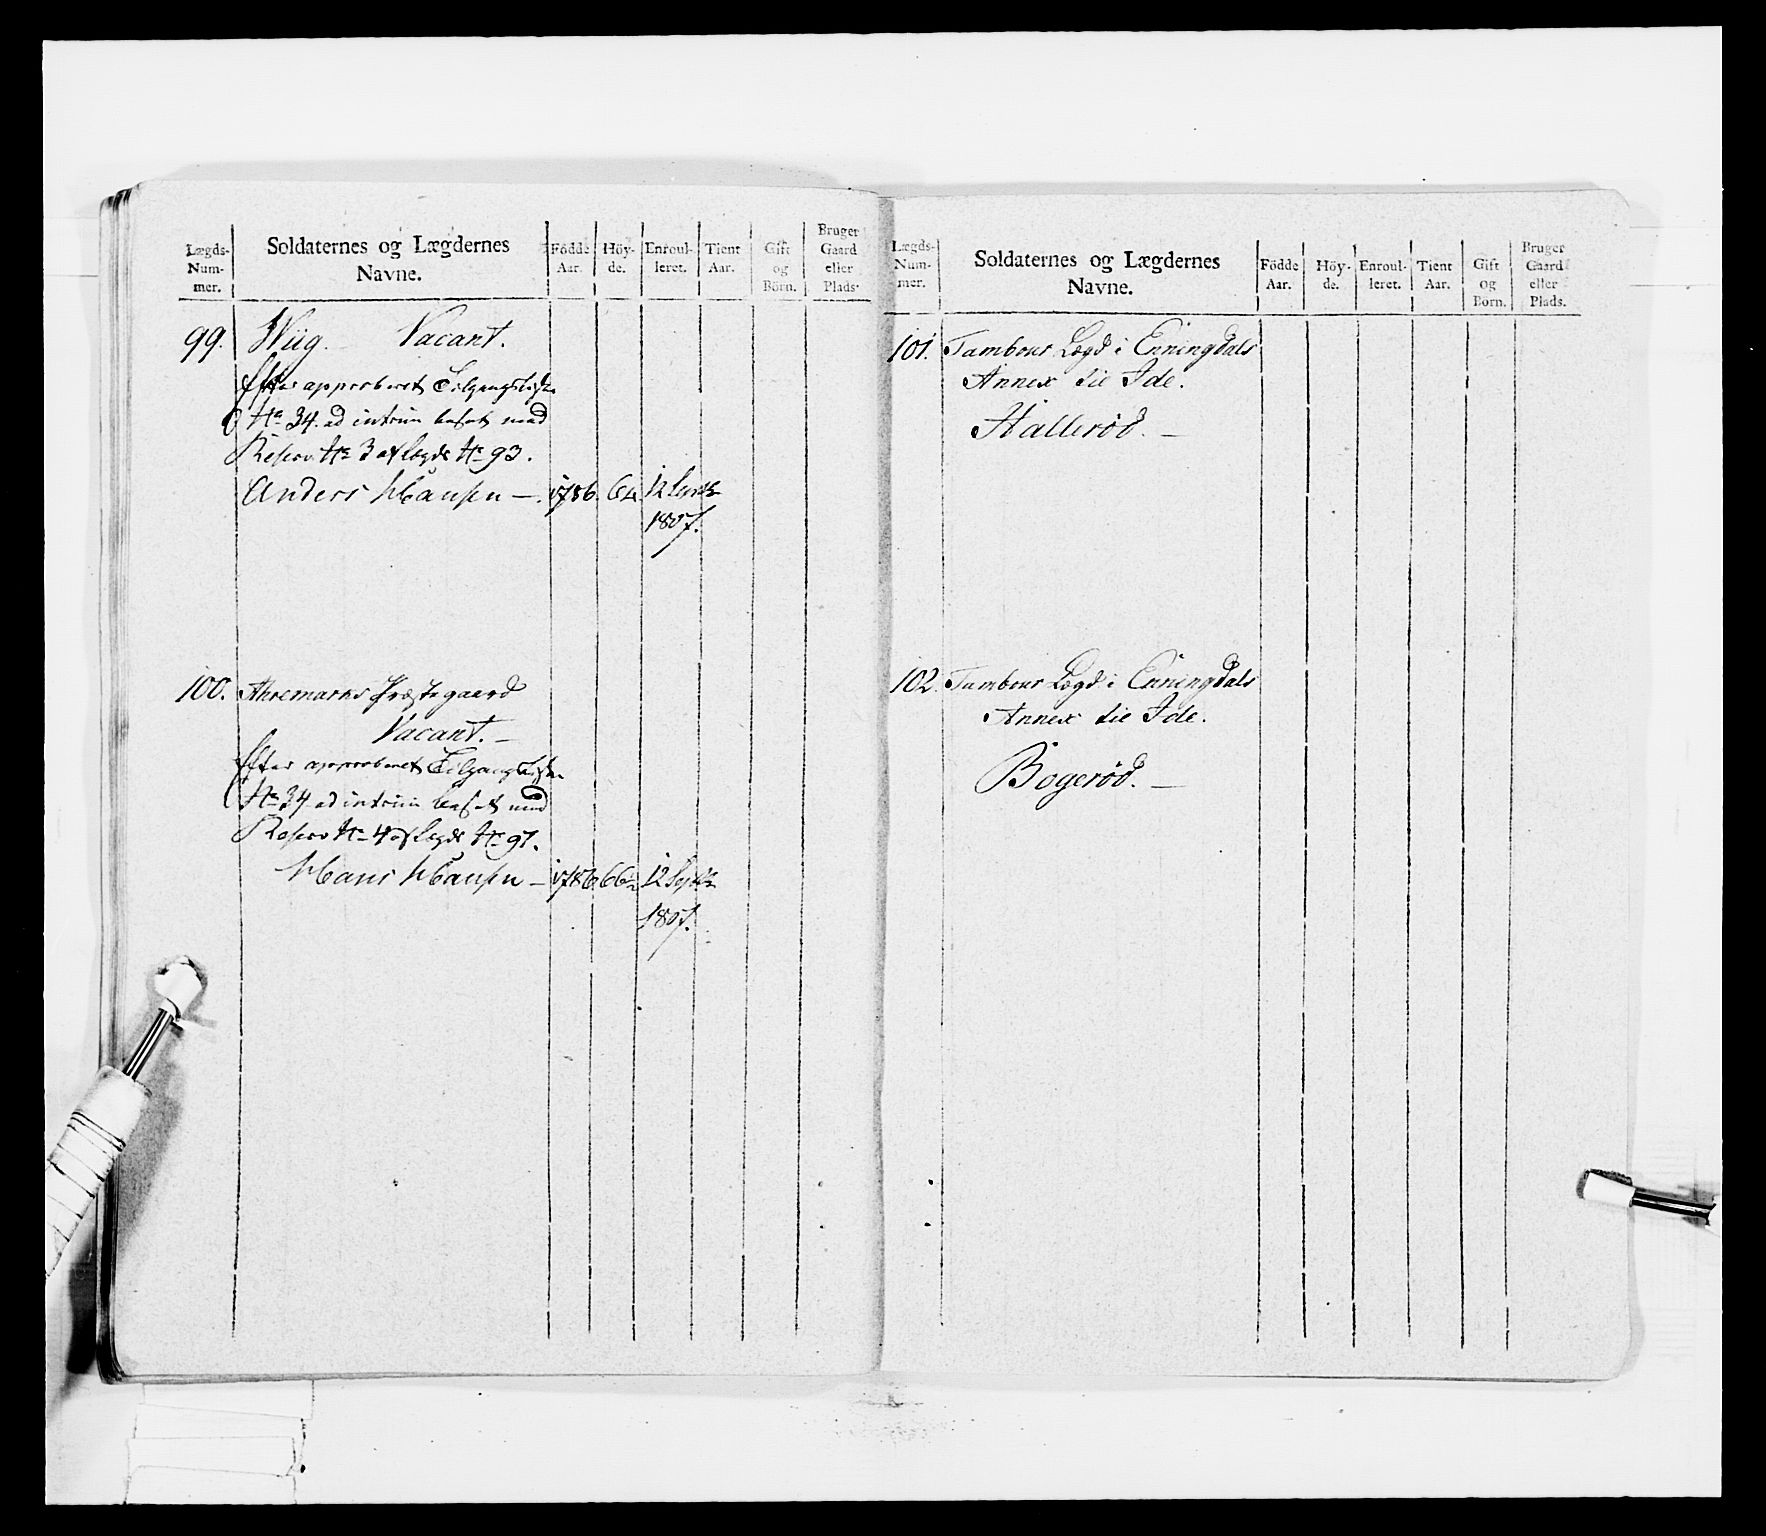 Lægds-
Num-
mer.
Soldaternes og Lægdernes
Navne.
Födde
Aar.
Höy-
de.
Enroul-
leret.
Tient
Aar.
Gift
og
Börn.
Bruger
Gaard
eller
Plads.
99. Wiig. Vacant.
Efter approberet Tilgangsliste
No 34. ad intrim besat med
Reserv No 3 af Legde No 93.
Anders Hansen —. 1786. 64. 12 Septb
1807.
100. Ahremarks Præstegaard
Vacant. —
Efter approberet Tilgangsliste
No 34 ad intrim besat med
Reserv No 4 af Legde No 97.
Hans Hansen — 1786 66½ 12 Septb
1807.
Lægds-
Num-
mer.
Soldaternes og Lægdernes
Navne.
Födde
Aar.
Höy-
de.
Enroul-
leret.
Tient
Aar.
Gift
og
Börn.
Bruger
Gaard
eller
Plads.
101. Tambour Lægd i Enningdals
Annex til Ide.
Hallerød. —
102. Tambour Lægd i Enningdals
Annex til Ide.
Bogerød. —